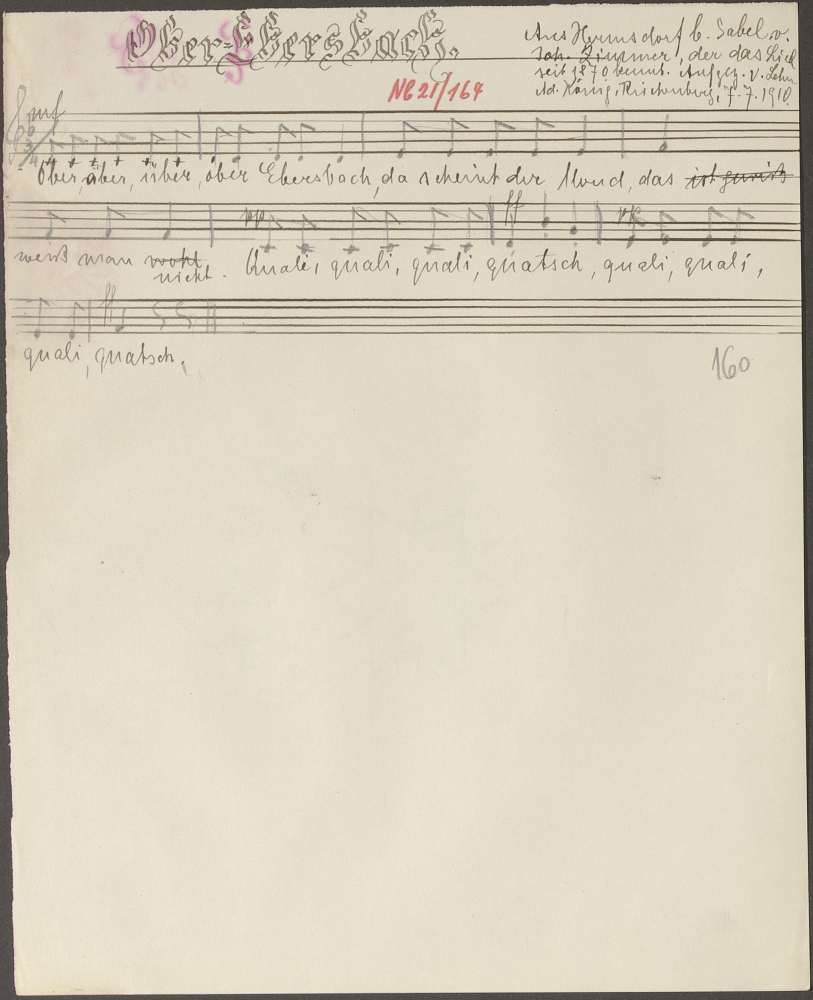 Ober-Ebersbach.
Aus Hermsdorf b. Gabel v.
Joh. Zimmer, der das Lied
seit 1870 kennt. Aufgez. v. Lehr.
Ad. König, Reichenberg, 7.7.1910.
NB 21/164
mf
3/4
Ober, über, über, ober Ebersbach, da scheint der Mond, das ist gewiß
pp ff pp
weiß man wohl nicht. Quali, quali, quali, quatsch, quali, quali,
ff
quali, quatsch.
160